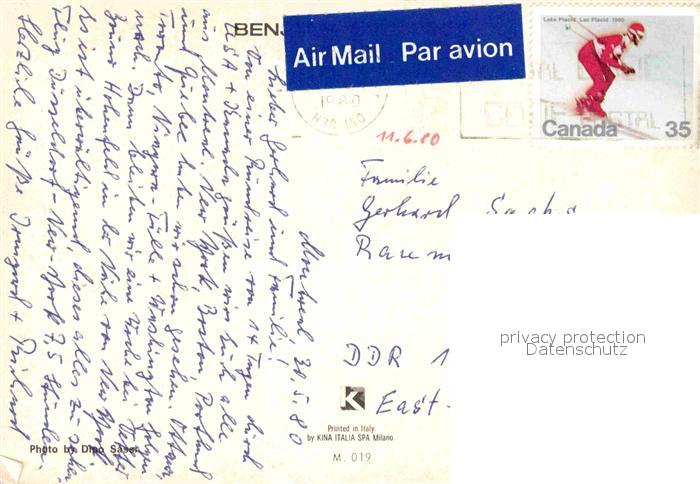 BENJ
Air Mail Par avion
Lake Placid, Lac Placid 1980
Canada 35
1980
H3C 1S0
CODE POSTAL
11.6.80
Familie
Gerhard
DDR 1
East-
privacy protection
Datenschutz
K
Printed in Italy
by KINA ITALIA SPA Milano
M. 019
Photo by Dino Sassi
Montreal 30.5.80
Lieber Gerhard und Familie!
Von einer Rundreise von 14 Tagen durch
USA + Kanada grüßen wir Euch alle
aus Montreal. New York, Boston, Portland
und Quebec haben wir schon gesehen. Ottawa,
Toronto, Niagara-Fälle + Washington folgen
noch. Dann bleiben wir eine Woche bei
in der Nähe von New York.
Es ist überwältigend, dieses alles zu sehen.
Flug Düsseldorf-New-York 7,5 Stunden.
Herzliche Grüße Irmgard +